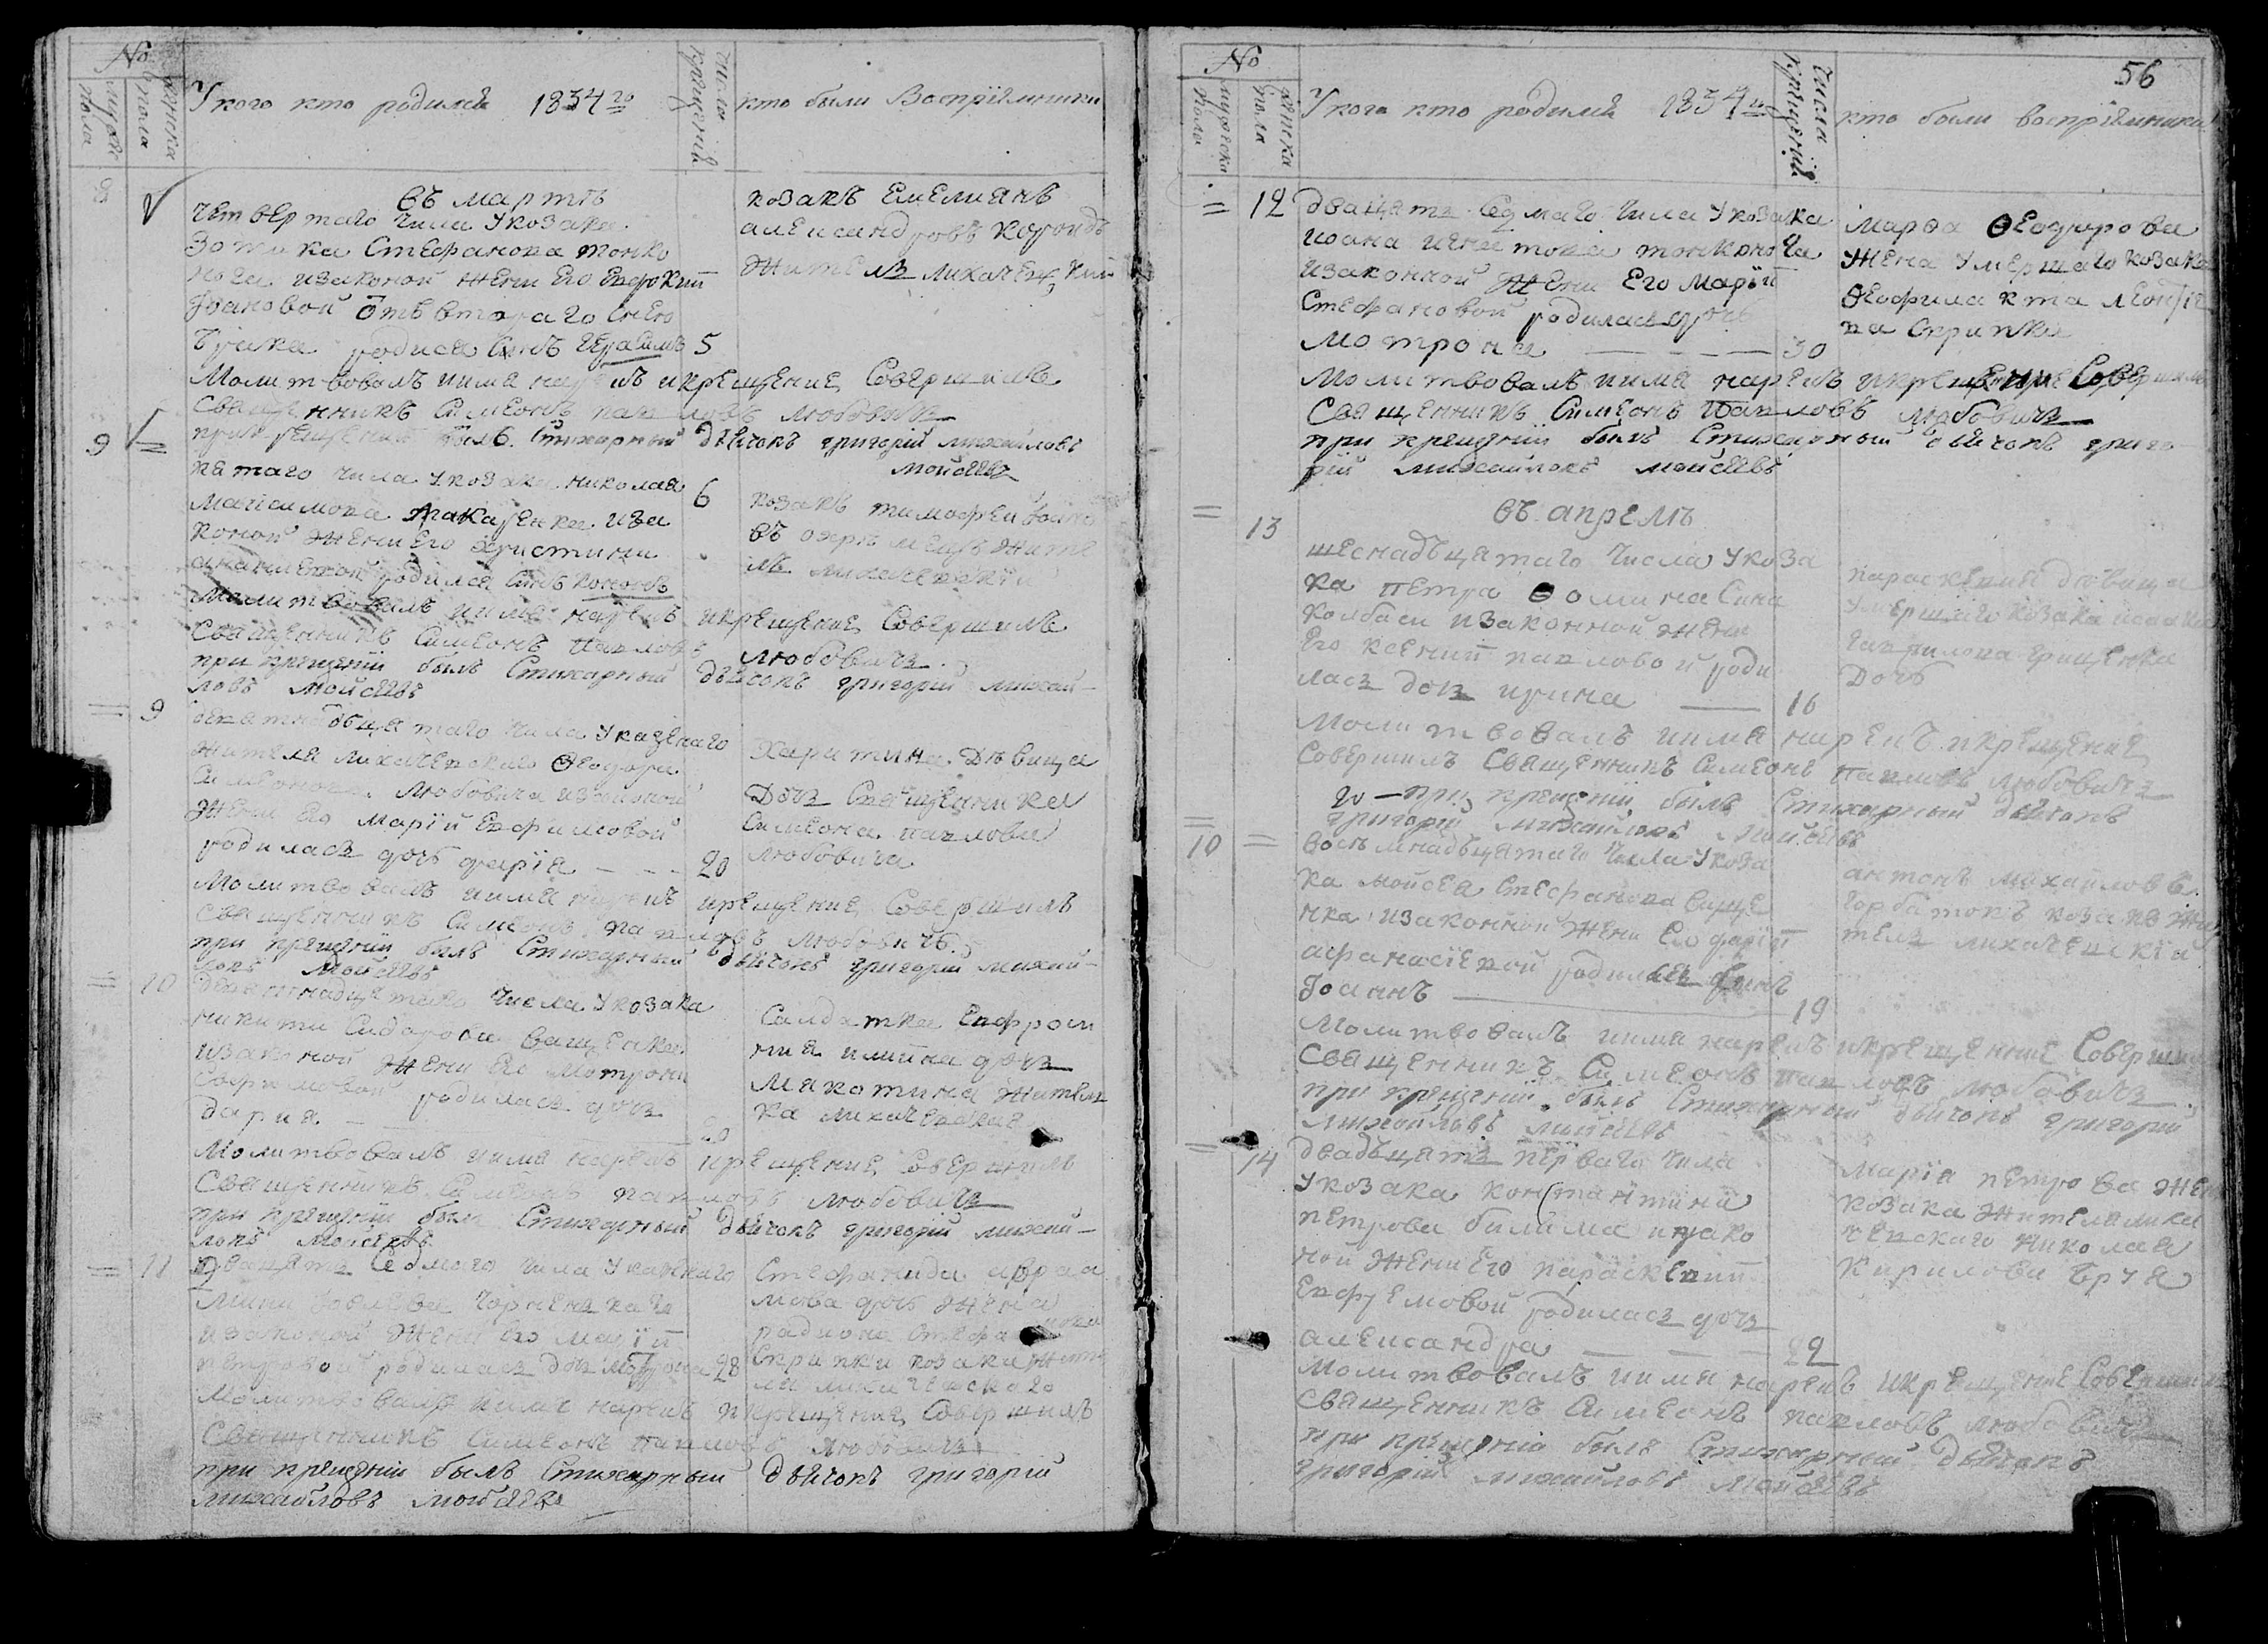 No
мужеска пола
женска пола
У кого кто родился 1834го
Число крещений
кто были Воспрiемники
въ мартѣ
8
четвертаго числа У козака
Зотика Стефанова тонко
нога изаконой жени Его Евфокiи
Iвановой отъ втораго Снею
брака родися Синъ герасимъ 5
козакъ Емелианъ
александровъ
житель ликачевский
Молитвовалъ иимя нарекъ икрещение Совершилъ
Священникъ Симеонъ павловъ любовичь
при крещении былъ Стихарный дьячокъ григорий михайловъ
мойсѣевъ
9
пятаго числа У козака николая
максимова макаренка иза
коной жени Его христини
родился Синъ кононъ
6
козакъ тимофей
жите
ль ликачевскiй
Молитвовалъ иимя нарекъ икрещение Совершилъ
Священникъ Симеонъ Павловъ любовичь
при крещенiи былъ Стихарный дьячокъ григорiй михай-
ловъ мойсѣевъ
9
девятнадцятаго числа Указенаго
жителя ликачевскаго Ѳеодора
Симеонова любовича изаконой
жени Его марiи Евфимовой
родилась дочь дарiя - - - 20
Харитина Дѣвица
Дочь Священника
Симеона павлова
любовича
Молитвовалъ иимя нарекъ икрещение Совершилъ
священникъ Симеонъ павловъ любовичь
при крещенiи былъ Стихарный дьячокъ григорiй михай-
ловъ мойсѣевъ
10
девятнадцятаго числа У козака
никити Сидорова ващенка
изаконой жени Его мотрони
Евфимовой родилась дочь
дария - 20
Салдатка Евфроси
ния дочь
житель
ка ликачевская
Молитвовалъ иимя нарекъ икрещение Совершилъ
Священникъ Симеонъ павловъ любовичь
при крещенiи былъ Стихарный дьячокъ григорiй михай-
ловъ мойсѣевъ
11
Двацять Седмаго числа Указенаго
изаконой жени Его марiи
петровой родилась дочь мотрона 28
Стефанида авраа
мова дочь жена
радиона Стефанова
Скрипки козака жите
ля ликачевскаго
Молитвовалъ иимя нарекъ икрещение Совершилъ
Священникъ Симеонъ павловъ любовичь
при крещенiи былъ Стихарный дьячокъ григорiй
михайловъ мойсѣевъ
56
No
мужеска пола
женска пола
У кого кто родился 1834го
Числа крещенiй
кто были воспрiемники
12
двацять Седмаго числа У козака
иоана тонконога
изаконной жени Его марiи
Стефановой родилась дочь
мотрона - - - 30
марѳа Ѳеодорова
жена Умершаго козака
Ѳеофилакта
ва Скрипки
Молитвовалъ иимя нарекъ икрещение Совершилъ
Священникъ Симеонъ Павловъ любовичь
при крещенiи былъ Стихарный дьячокъ григо
рiй михайловъ мойсѣевъ
въ апрелъ
13
шеснадъцятаго числа У коза
ка петра Ѳомина Сина
колбаси изаконной жени
Его ксении павловой роди
лась дочь ирина — 16
параскевия дѣвица
Умершаго козака
гаврилова грищенка
Дочь
Молитвовалъ иимя нарекъ икрещение
Совершилъ Священникъ Симеонъ Павловъ любовичь
при крещенiи былъ Стихарный дьячокъ
григорiй михайловъ мойсѣевъ
10
восемнадъцятаго числа У коза
ка мойсея Стефанова ваще
нка изаконной жени Его дарiи
афанасiевой родился Синъ
Iоаннъ — 19
антонъ михайловъ
горбатокъ козакъ жи
тель ликачевскiй
Молитвовалъ иимя нарекъ икрещенние Соверши
Священникъ Симеонъ павловъ любовичь
при крещенiи былъ Стихарный дьячокъ григорiй
михайловъ мойсѣевъ
14
двадъцять перваго числа
У козака константина
петрова билима изако
ной жени Его параскевии
Евфремовой родилась дочь
александра — — 22
марiя петрова жена
козака жителя лика
чевскаго николая
Кирилова
Молитвовалъ иимя нарекъ икрещение Совершилъ
Священникъ Симеонъ павловъ любовичь
при крещенiи былъ Стихарный дьячокъ
григорiй михайловъ мойсѣевъ